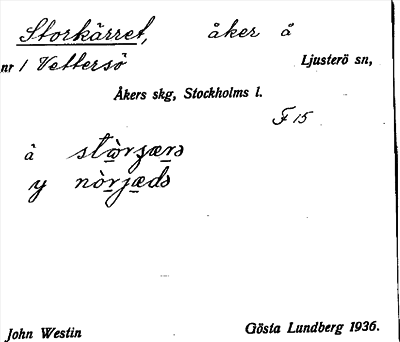 Storkärret, åker å
nr 1 Vettersö Ljusterö sn,
Åkers skg, Stockholms l.
F 15
å
y
John Westin Gösta Lundberg 1936.